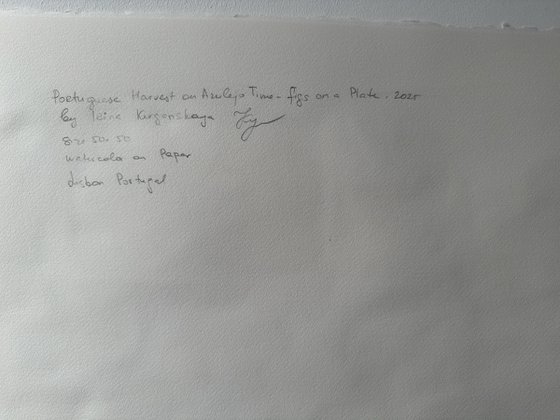 Portuguese Harvest on Azulejo Time - figs on a Plate. 2025
by Irina Kurgonskaya
50.50
watercolo on Paper
Lisbon Portugal